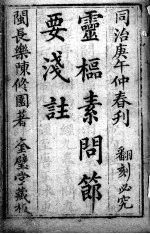 同治庚午仲春刊
翻刻必究
靈樞素問節
要淺註
閩長樂陳修園著
金璧堂藏板